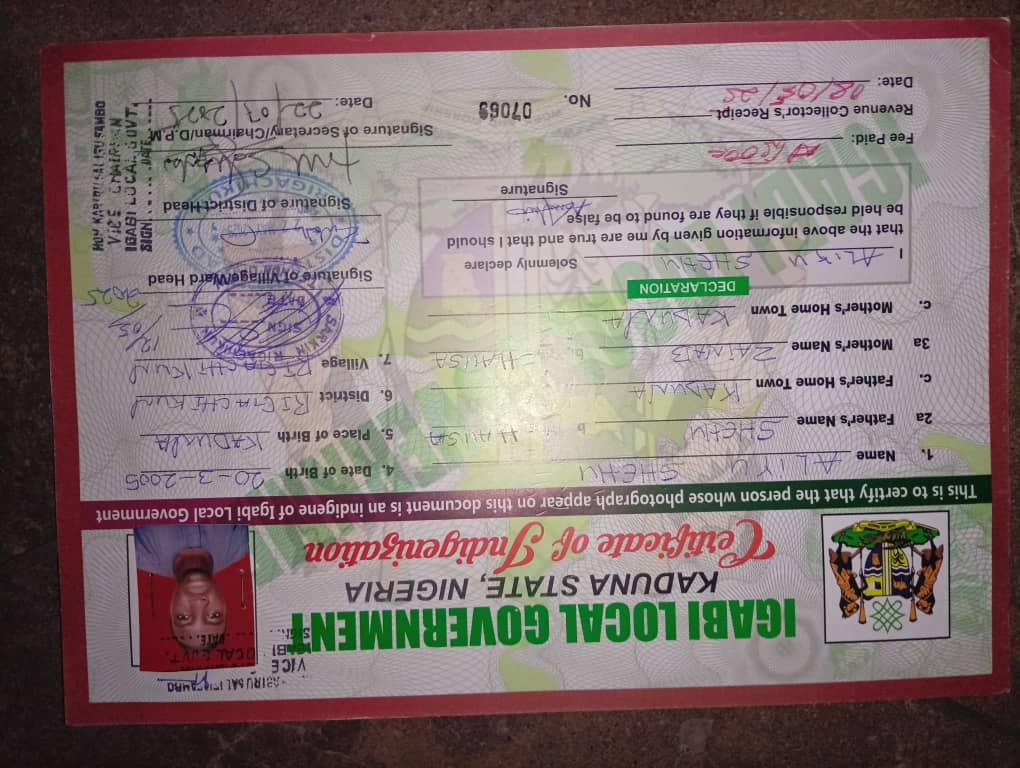 IGABI LOCAL GOVERNMENT
KADUNA STATE, NIGERIA
Certificate of Indigenisation
This is to certify that the person whose photograph appear on this document is an indigene of Igabi Local Government
1. Name ALIYU SHEHU
2a Father's Name SHEHU b HAUSA
c. Father's Home Town KADUNA
3a Mother's Name ZAINAB b. HAUSA
c. Mother's Home Town KADUNA
4. Date of Birth 20-3-2005
5. Place of Birth KADUNA
6. District RIGACHIKUN
7. Village RIGACHIKUN
DECLARATION
I ALIYU SHEHU Solemnly declare
that the above information given by me are true and that I should
be held responsible if they are found to be false
Signature
Fee Paid:
Revenue Collector's Receipt
Date: 08/05/25
No. 07069
SARKIN RIGACHIKUN
SIGN
DATE
12/05/2025
Signature of Village/Ward Head
DISTRICT HEAD
RIGACHIKUN
Signature of District Head
Signature of Secretary/Chairman/D.P.M
Date: 22/07/2025
HON KABIRU SALISU JAMBO
VICE CHAIRMAN
IGABI LOCAL GOVT.
SIGN. DATE
VICE
LOCAL GOVT.
SIGN. DATE